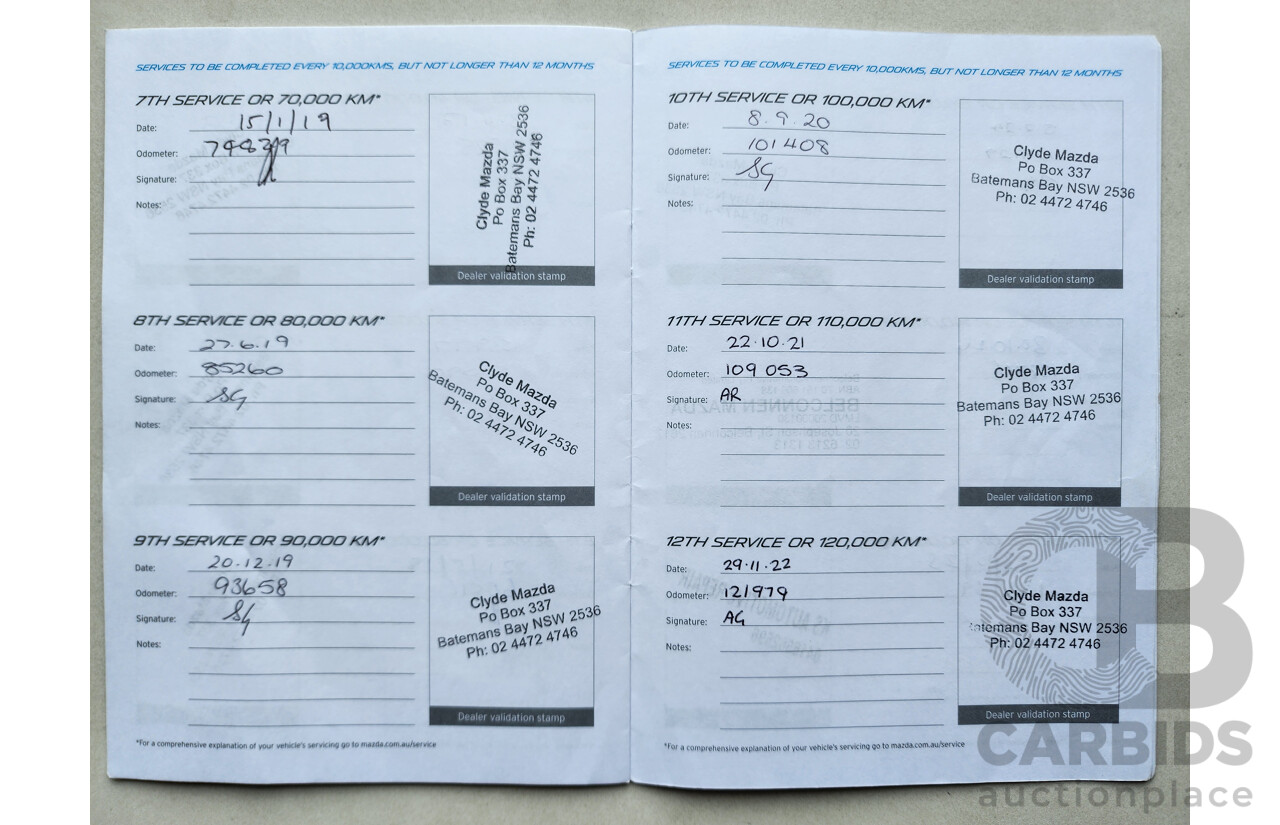 SERVICES TO BE COMPLETED EVERY 10,000KMS, BUT NOT LONGER THAN 12 MONTHS
7TH SERVICE OR 70,000 KM*
Date: 15/1/19
Odometer:
Signature:
Notes:
Clyde Mazda
Po Box 337
Batemans Bay NSW 2536
Ph: 02 4472 4746
Dealer validation stamp
8TH SERVICE OR 80,000 KM*
Date: 27.6.19
Odometer: 85260
Signature: SG
Notes:
Clyde Mazda
Po Box 337
Batemans Bay NSW 2536
Ph: 02 4472 4746
Dealer validation stamp
9TH SERVICE OR 90,000 KM*
Date: 20.12.19
Odometer: 93658
Signature: SG
Notes:
Clyde Mazda
Po Box 337
Batemans Bay NSW 2536
Ph: 02 4472 4746
Dealer validation stamp
*For a comprehensive explanation of your vehicle's servicing go to mazda.com.au/service
SERVICES TO BE COMPLETED EVERY 10,000KMS, BUT NOT LONGER THAN 12 MONTHS
10TH SERVICE OR 100,000 KM*
Date: 8.9.20
Odometer: 101408
Signature: SG
Notes:
Clyde Mazda
Po Box 337
Batemans Bay NSW 2536
Ph: 02 4472 4746
Dealer validation stamp
11TH SERVICE OR 110,000 KM*
Date: 22.10.21
Odometer: 109 053
Signature: AR
Notes:
Clyde Mazda
Po Box 337
Batemans Bay NSW 2536
Ph: 02 4472 4746
Dealer validation stamp
12TH SERVICE OR 120,000 KM*
Date: 29.11.22
Odometer: 121979
Signature: AG
Notes:
Clyde Mazda
Po Box 337
Batemans Bay NSW 2536
Ph: 02 4472 4746
Dealer validation stamp
*For a comprehensive explanation of your vehicle's servicing go to mazda.com.au/service
CB
CARBIDS
auctionplace